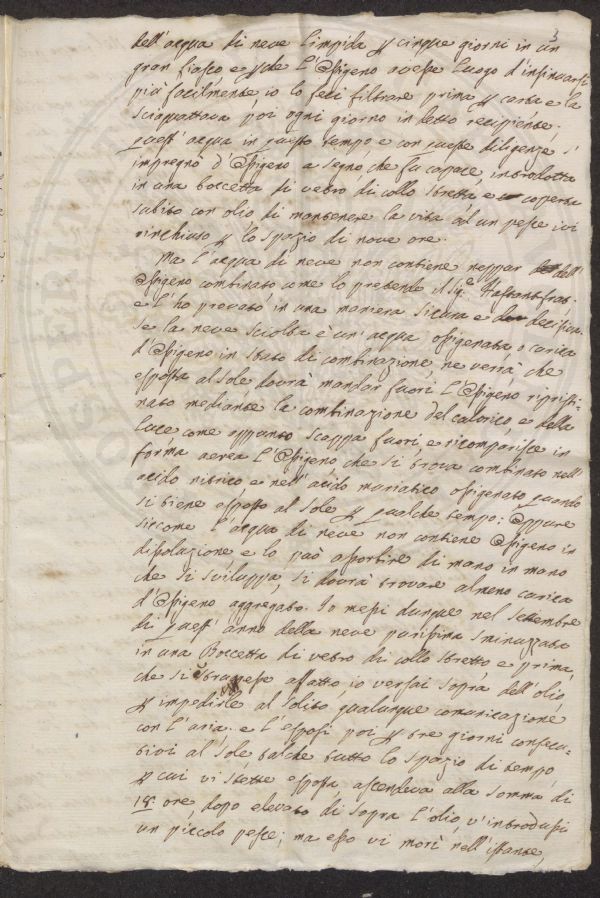 3
dell'acqua di neve limpida p cinque giorni in un
gran fiasco e p che l'Ossigeno avesse luogo d'insinuarsi
più facilmente io lo feci filtrare prima p carta e la
sciaquattava poi ogni giorno in detto recipiente.
quest'acqua in questo tempo e con queste diligenze s'
impregnò d'Ossigeno a segno, che fu capace, introdotta
in una boccetta di vetro di collo stretto e coperta
subito con olio di mantenere la vita ad un pesce ivi
rinchiuso p lo spazio di nove ore.
Ma l'acqua di neve non contiene neppur dell'
Ossigeno combinato come lo pretende il Sig.e Hassenfratz
e l'ho provato in una maniera sicura e decisiva.
Se la neve sciolta è un'acqua ossigenata o carica
d'Ossigeno in stato di combinazione, ne verrà che
esposta al Sole dovrà mandar fuori l'Ossigeno ripristi-
nato mediante la combinazione del calorico, e della
luce come appunto scappa fuori, e ricomparisce in
forma aerea l'Ossigeno che si trova combinato nell'
acido nitrico e nell'acido muriatico ossigenato quando
si tiene esposto al Sole p qualche tempo: Oppure
siccome l'acqua di neve non contiene Ossigeno in
dissoluzione e lo può assorbire di mano in mano
che si sviluppa, si dovrà trovare almeno carica
d'Ossigeno aggregato. Io messi dunque nel Settembre
di quest'anno della neve purissima sminuzzata
in una Boccetta di vetro di collo stretto e prima,
che si struggesse affatto, io versai sopra dell'olio
p impedirle al solito qualunque comunicazione
con l'aria. e l'esposi poi p tre giorni consecu-
tivi al Sole, talche tutto lo spazio di tempo,
p cui vi stette esposta, ascendeva alla somma di
18 ore, dopo elevato di sopra l'olio, v'introdussi
un piccolo pesce; ma esso vi morì nell'istante,